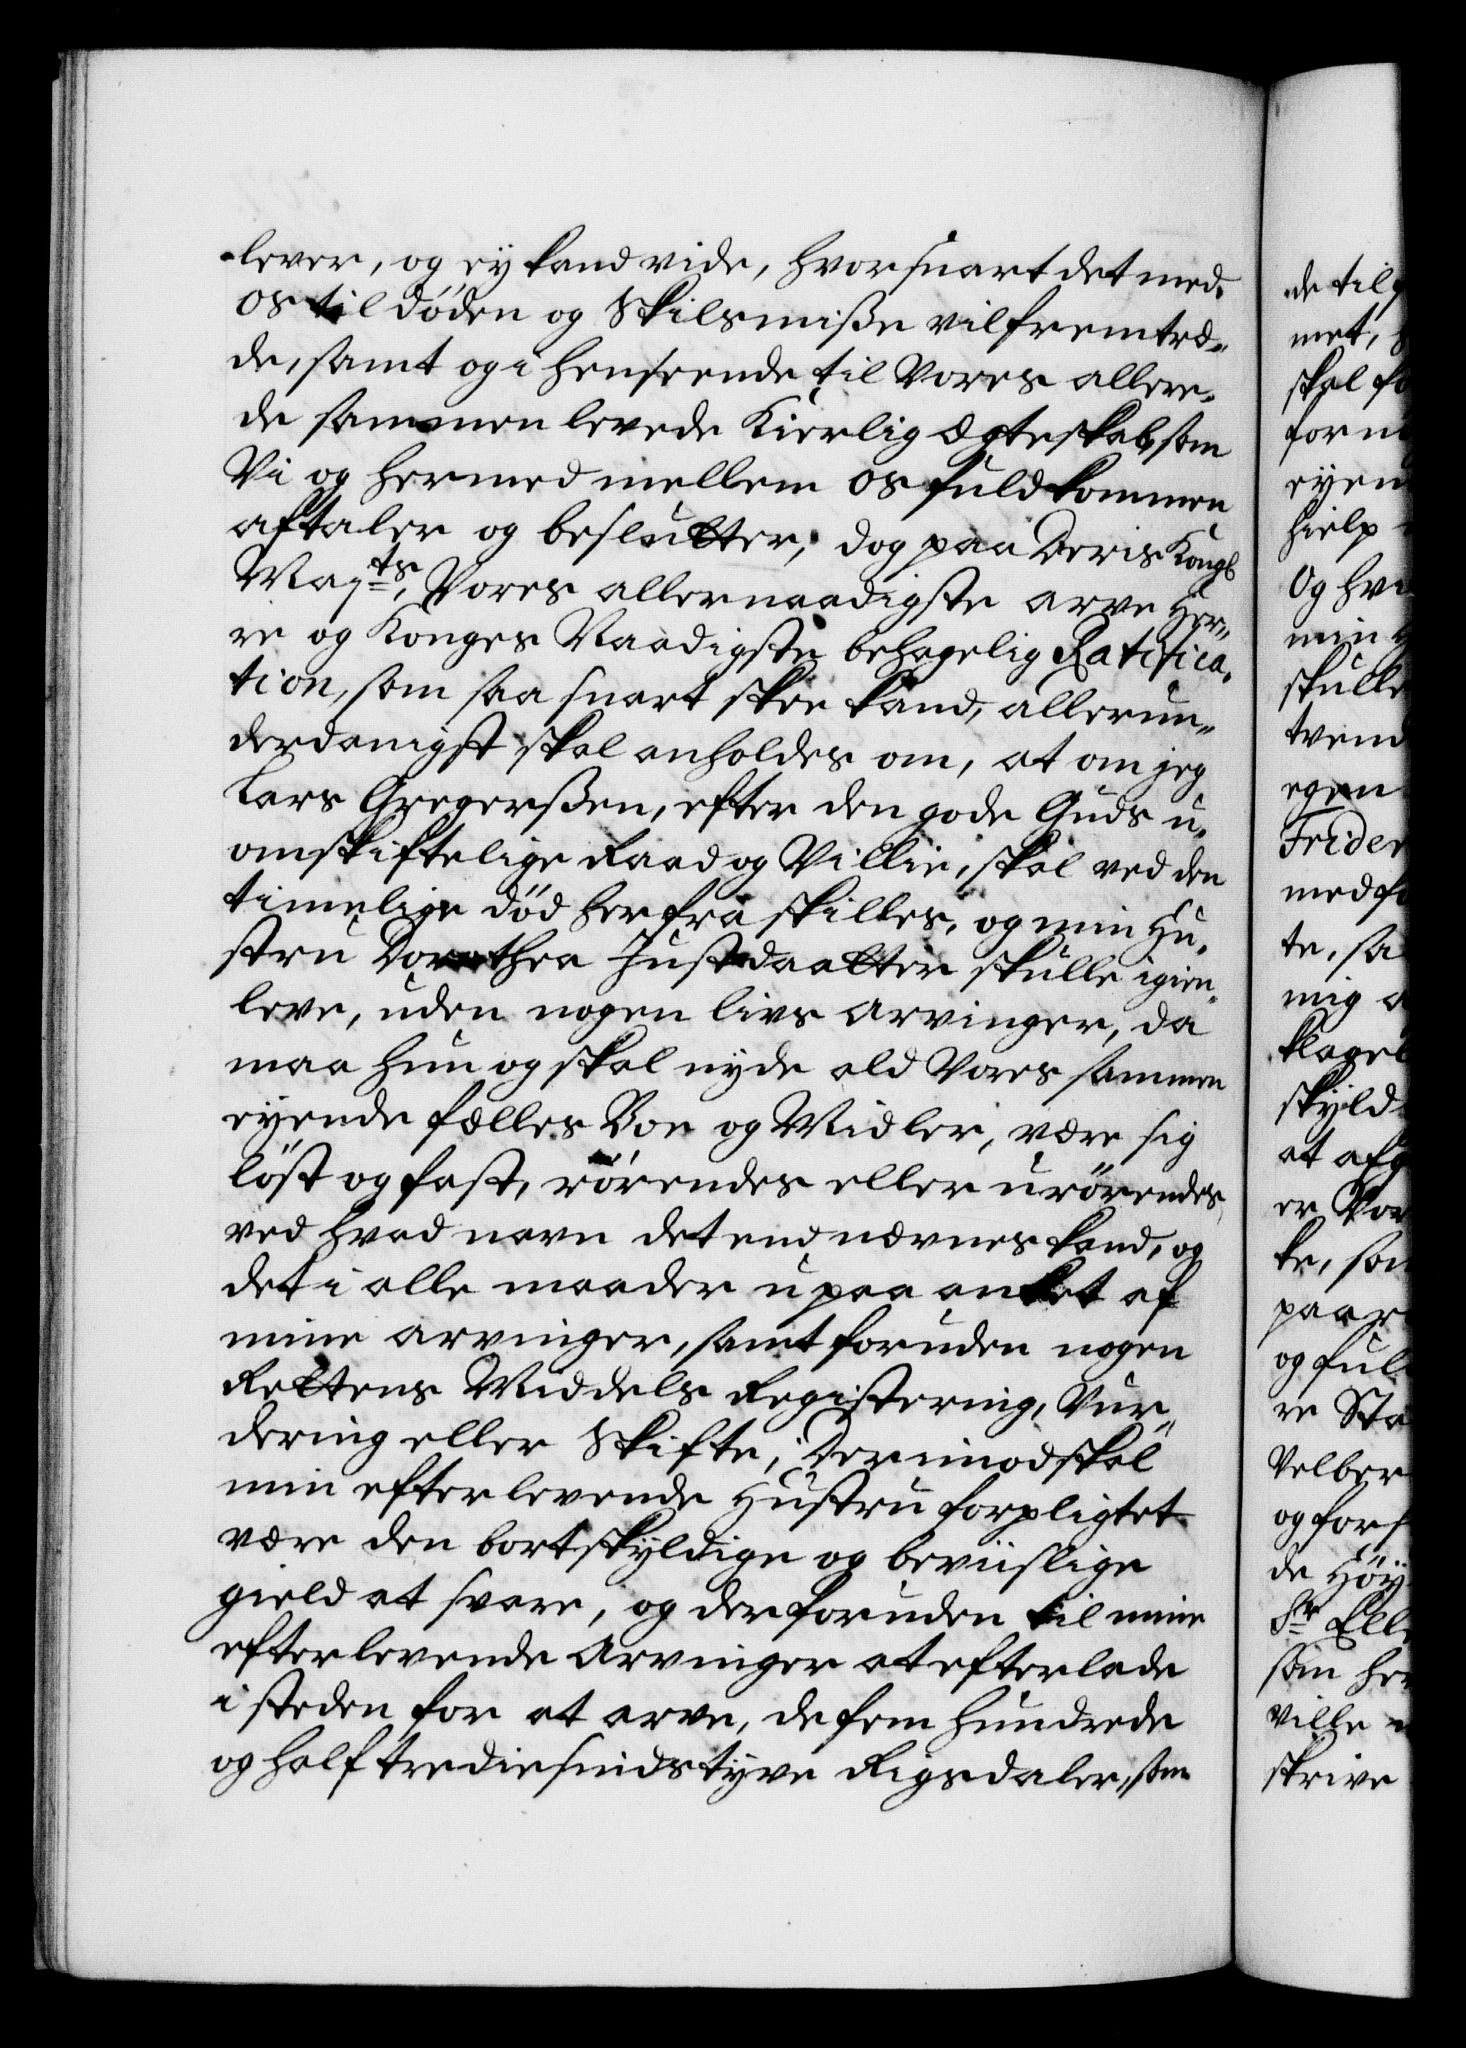 lever, og ey kand vide, hvor snart det med
os til døden og Skilsmiße vil fremtræ-
de, samt og i henseende til Vores allere-
de sammen levede Kierlig Ægteskab, som
Vi og hermed mellem os fuldkommen
aftaler og beslutter, dog paa Deris Kongl
Mayts, Vores allernaadigste arve Her-
re og Konges Naadigste behagelig Ratifica-
tion, som saa snart skee kand, allerun-
derdanigst skal anholdes om, at om jeg
Lars Gregerßen, efter den gode Guds u-
omskiftelige Raad og Villie, skal ved den
timelige død herfra skilles, og min Hu-
stru Dorothea Justdaatter skulle igien-
leve, uden nogen livs Arvinger, da
maa hun og skal nyde ald Vores sammen
eyende fælles Boe og Midler, være sig
løst og fast, rørendes eller urørendes
ved hvad navn det end nævnes kand, og
det i alle maader upaaanket af
mine arvinger, samt foruden nogen
Rettens Middels Registering, Vur-
dering eller Skifte, Derimod skal
min efterlevende Hustru forpligtet
være den bortskyldige og beviislige
gield at svare, og derforuden til mine
efterlevende Arvinger at efterlade
i steden for at arve, de fem hundrede
og half trediesindstyve Rigsdaler, som
de til
met,
skal
for
eyen
hielp
Og
min
skulle
tvend
egen
Frider
med
te, sa
mig
klagel
skyld
at
er Vor
ke, som
paa
og ful
re Sta
Velber
og for
de Høy
Sr Elle
som her
ville
skrive